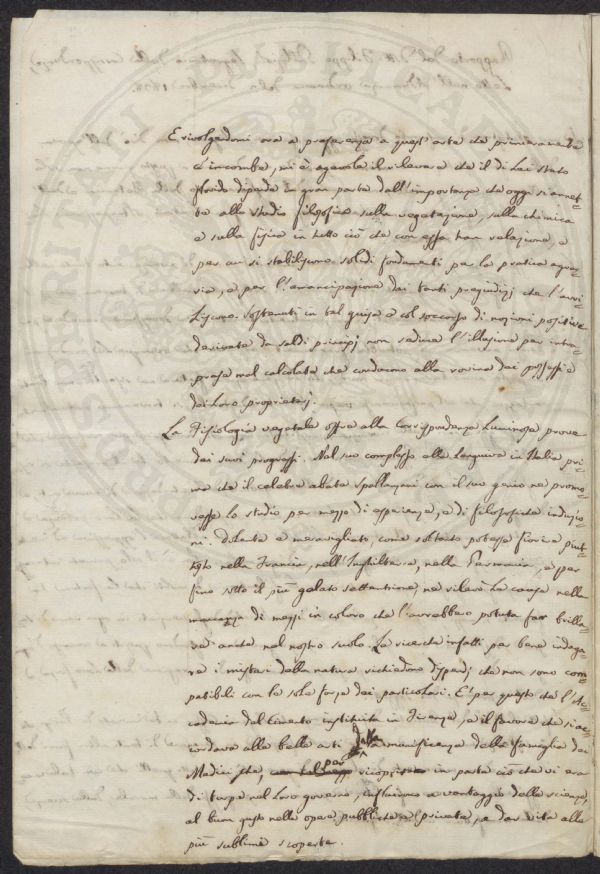 E rivolgendomi ora a preferenza a quest'arte che primieramente
c'incombe, mi è agevole il rilevare che il di Lei stato
florido dipende in gran parte dall'importanza che oggi si annet-
te allo studio filosofico sulla vegetazione, sulla chimica
e sulla fisica in tutto ciò che con essa han relazione, e
per cui si stabiliscono solidi fondamenti per la pratica agra-
ria, e per l'emancipazione dai tanti pregiudizj che l'avvi-
liscono. Sostenuti in tal guisa e col soccorso di nozioni positive
derivate da saldi principj non seduce l'illusione per intra-
prese mal calcolate che conducono alla rovina dei possessi e
dei Loro proprietarj.
La Fisiologia vegetale offre alla Corrispondenza Luminose prove
dei suoi progressi. Nel suo complesso ella Languiva in Italia pri-
ma che il celebre abate Spallanzani con il suo genio ne promo-
vesse lo studio per mezzo di esperienze, e di filosofiche induzio-
ni. Dolente e meravigliato, come soltanto potesse fiorire piut-
tosto nella Francia, nell'Inghilterra, nella Germania, e per
fino sotto il più gelato settentrione, ne rilevò La causa nella
mancanza di mezzi in coloro che l'avrebbero potuta far brilla-
re anche nel nostro suolo. Le ricerche infatti per bene indaga-
re i misteri della natura richiedono dispendj che non sono com-
patibili con le sole forze dei particolari. E' per questo che l'Ac-
cademia del Cimento instituita in Firenze, e il favore che si ac-
cordava alle belle arti dalla munificenza della famiglia dei
Medici per ricoprire in parte ciò che vi era
di turpe nel Loro governo, influirono a vantaggio delle scienze,
al buon gusto nelle opere pubbliche e private, e dar vita alle
più sublimi scoperte.